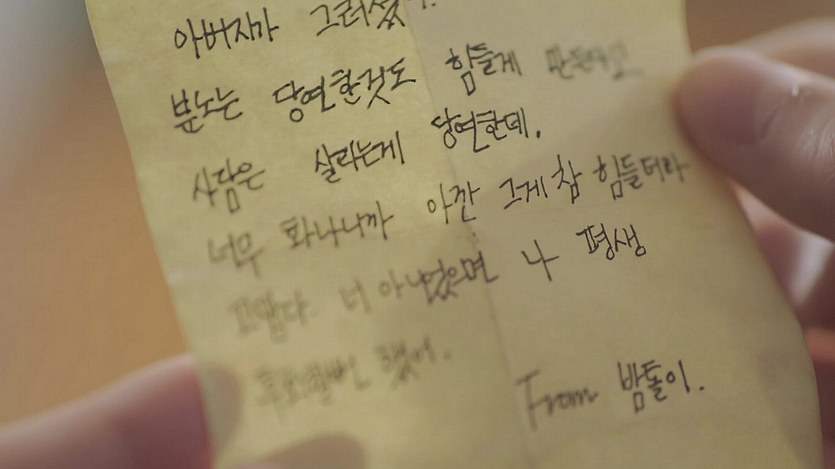 아버지가 그러셨어.
분노는 당연한것도 힘들게 만든다고..
사람은 살리는게 당연한데.
너무 화나니까 아깐 그게 참 힘들더라
고맙다. 너 아니었으면 나 평생
후회할뻔 했어.
From 밤톨이.